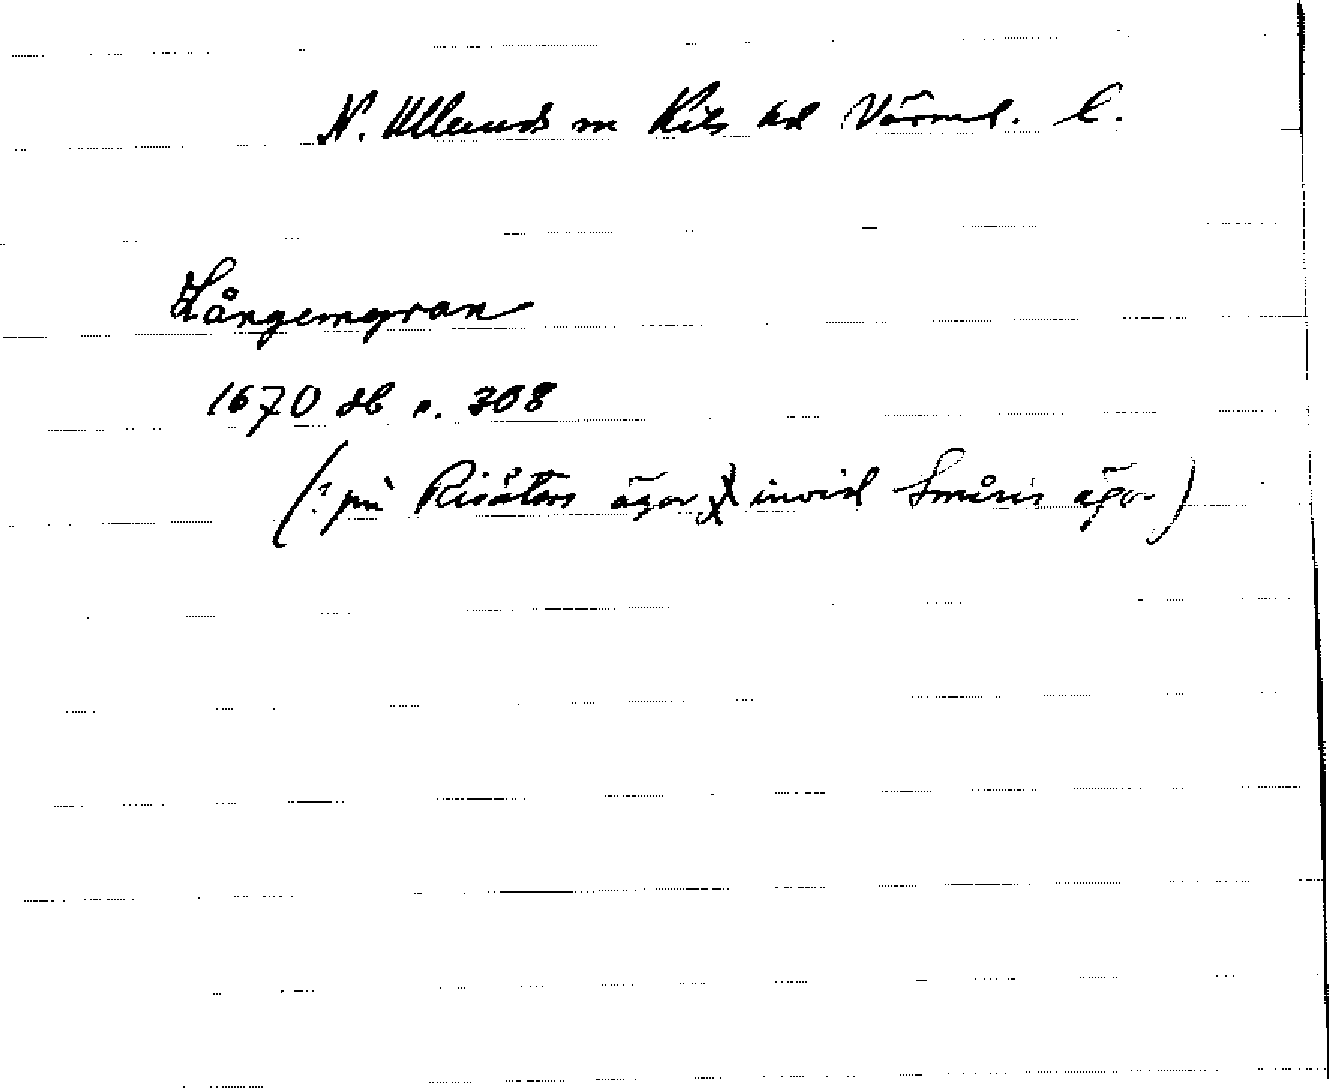 N. Ullerud sn Kils hd Värml. l.
Långemyran
1670 db s. 308
(: på Risäters ägor invid Småris ägor)